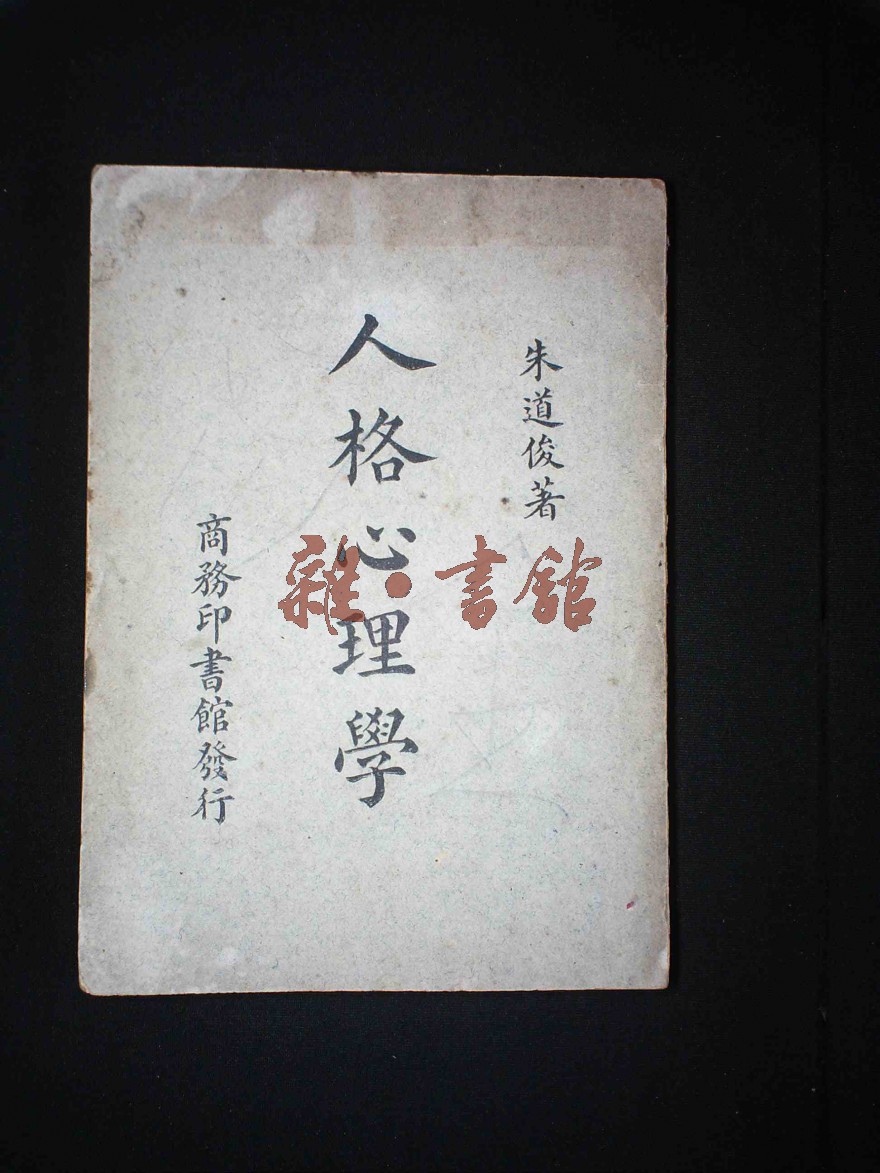 朱道俊著
人格心理學
商務印書館發行
雜·書館